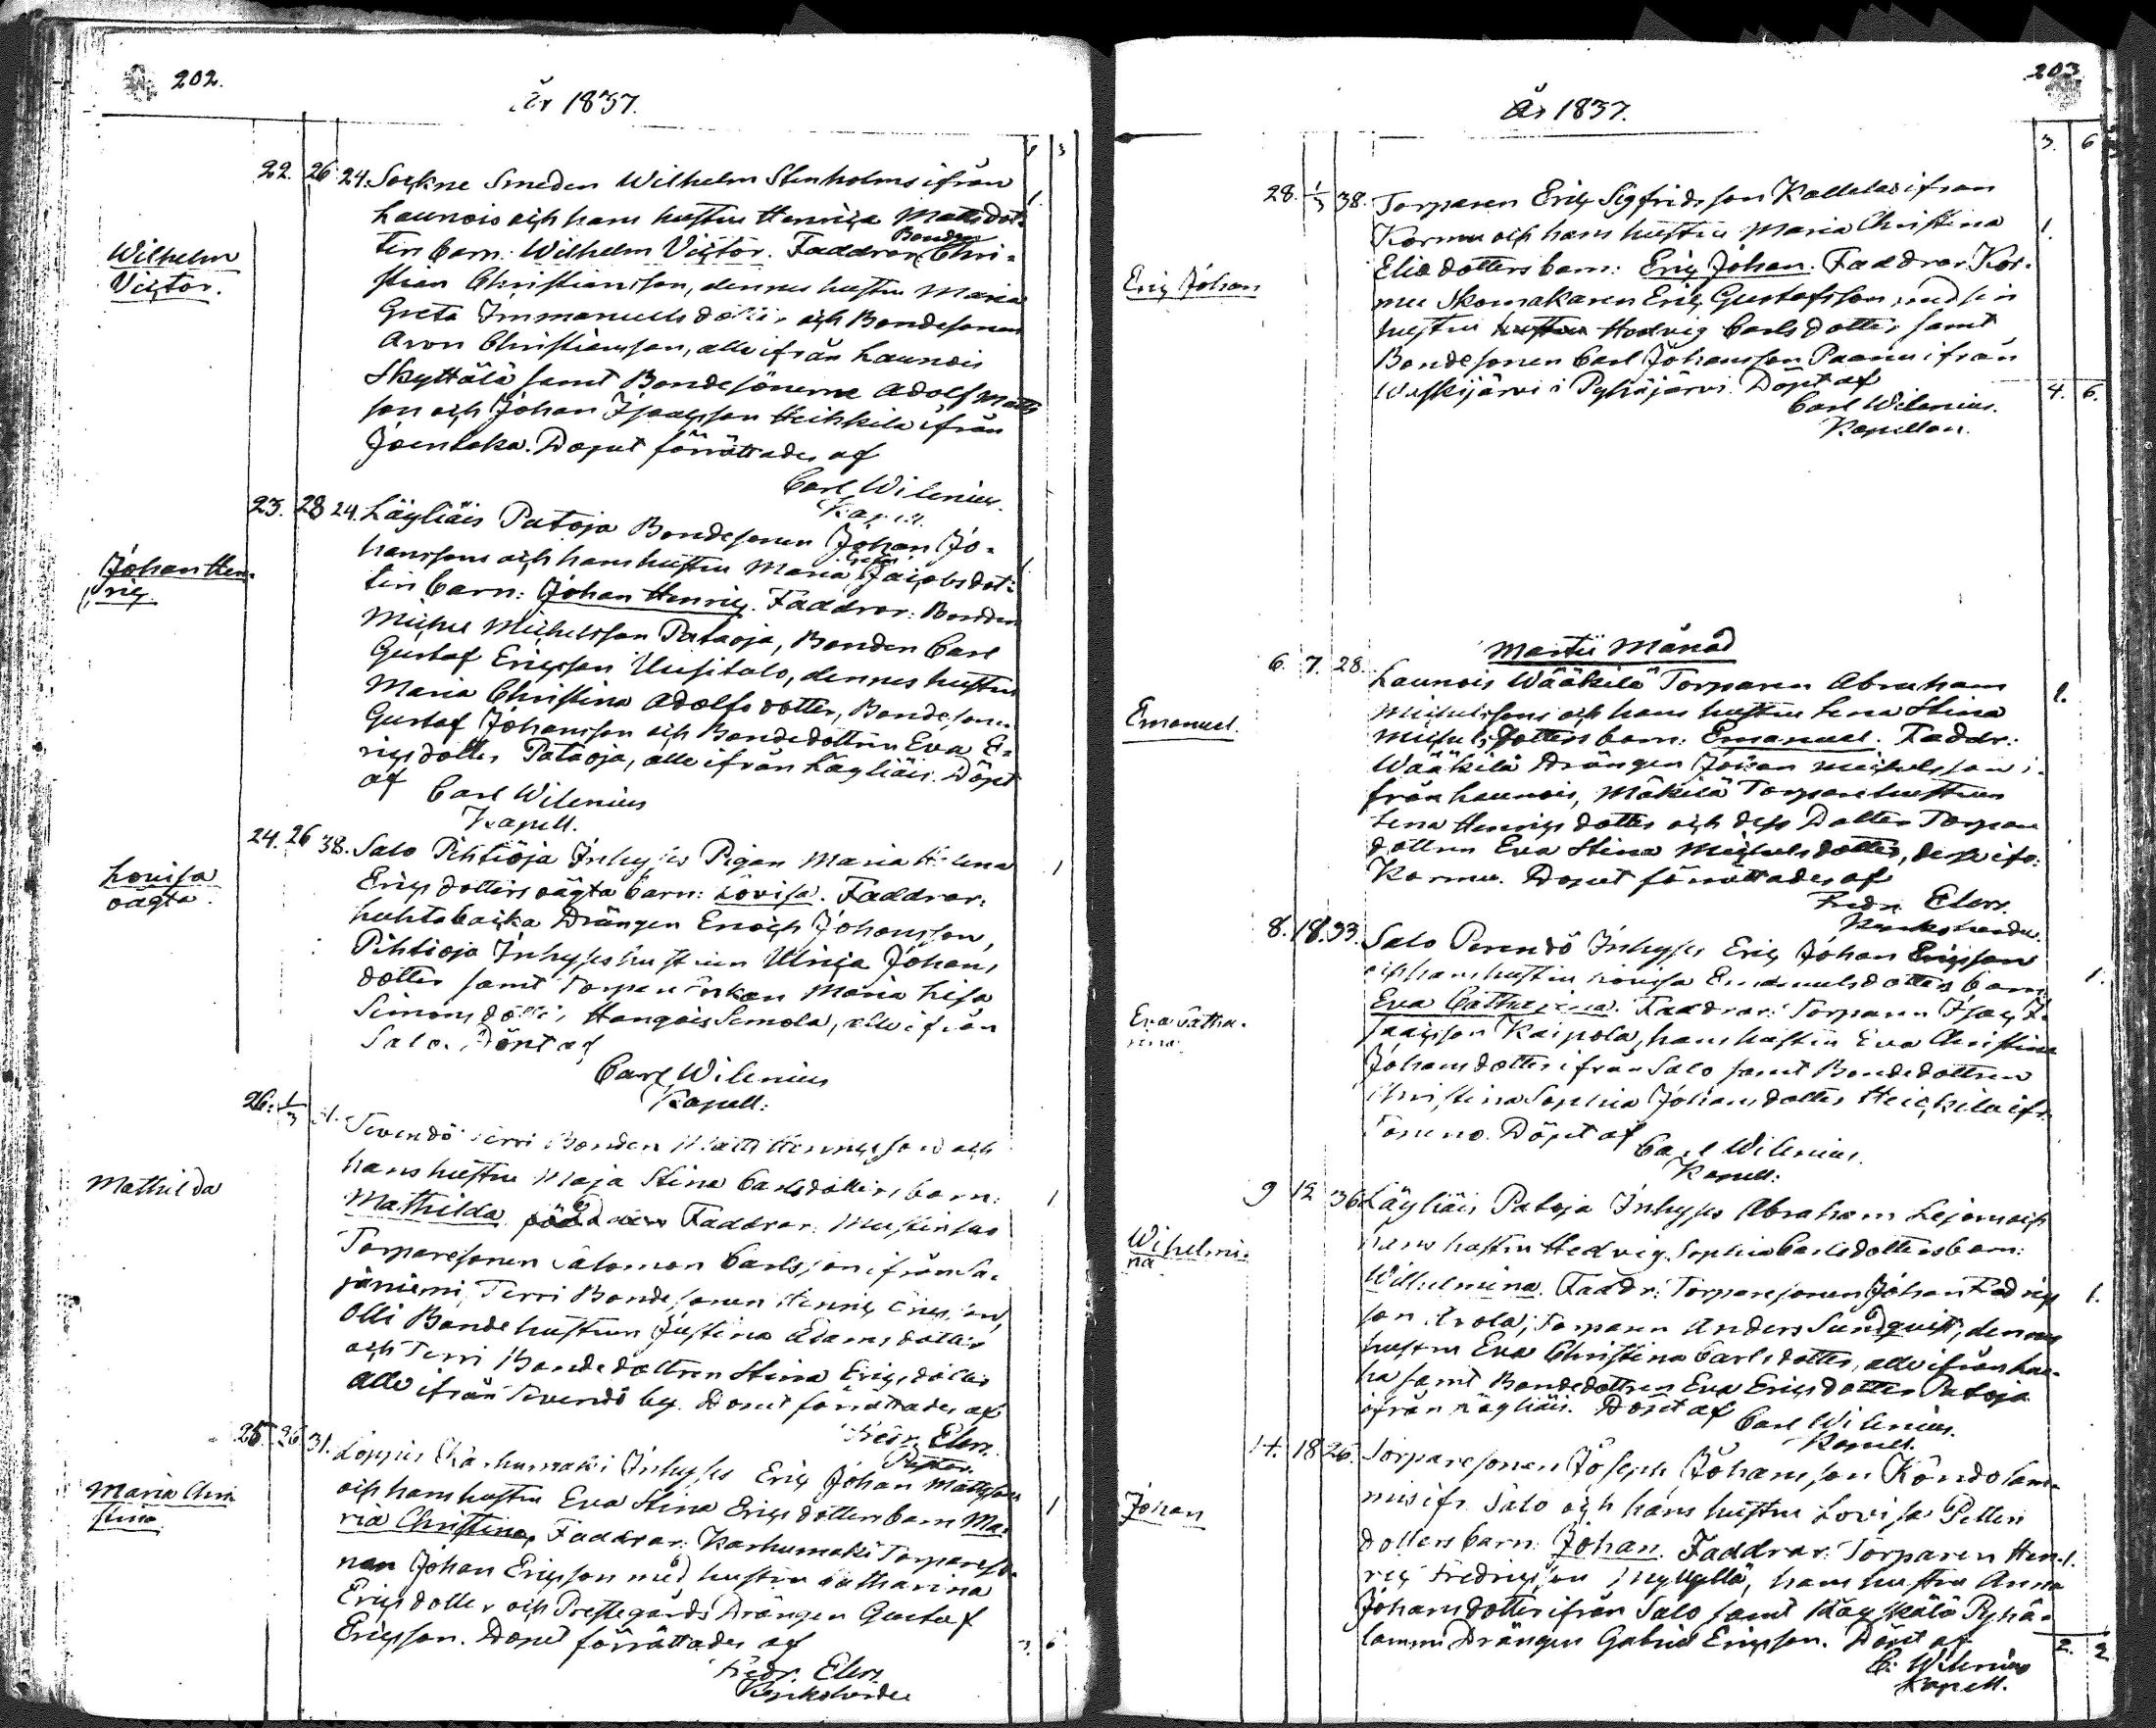 202.
År 1837.
22. 26 24. Sockne Smeden Wilhelm Stenholms ifrån
Launois och hans hustru Henrica Mattsdot-
ters barn: Wilhelm Victor. Faddrar: Bonden Chri-
stian Christiansson, dennes hustru Maria
Greta Immanuelsdotter och Bondesonen
Aron Christiansson, alle ifrån Launois
Skyttälä samt Bondesönerne Adolf Matts
son och Johan Isaacsson Heikkilä ifrån
Joenloka. Dopet förrättades af
Carl Wilenius.
Kapell.
Wilhelm
Victor.
23. 28 24. Läyliäis Patoja Bondesonen Johan Jo-
hanssons och hans hustru Maria Jacobsdot-
ters barn: Johan Henric. Faddrar: Bonden
Michel Michelsson Pataoja, Bonden Carl
Gustaf Ericsson Uusitalo, dennes hustru
Maria Christina Adolfsdotter, Bondesonen
Gustaf Johansson och Bondedottren Eva E-
ricsdotter Pataoja, alle ifrån Läyliäis. Döpt
af Carl Wilenius
Kapell.
Johan Hen-
ric.
24. 26 38. Salo Pihtioja Inhyses Pigan Maria Helena
Ericsdotters oägta barn: Lovisa. Faddrar:
Huhta Drängen Enoch Johansson,
Pihtioja Inhyseshustrun Ulrica Johans
dotter samt Torpare Maria Lisa
Simonsdotter Hongois Simola, alle ifrån
Salo. Döpt af
Carl Wilenius
Kapell:
Lovisa
oägta.
26. 1/3 31. Tevendö Terri Bonden Matts Henricsson och
hans hustru Maja Stina Carlsdotters barn:
Mathilda Faddrar:
Torparesonen Salomon Carlsson ifrån Sa-
jäniemi, Terri Bondesonen Henric Ericsson,
Olli Bondehustrun Justina Adamsdotter
och Terri Bondedottren Stina Ericsdotter
alle ifrån Tevendö by. Dopet förrättades af
Fredr. Elers.
Mathilda
25. 26 31. Loppis Karhumäki Inhyses Eric Johan Mattssons
och hans hustru Eva Stina Ericsdotters barn Ma-
ria Christina, Faddrar: Karhumäki Torpareso-
nen Johan Ericsson med hustru Catharina
Ericsdotter och Prestegårds Drängen Gustaf
Ericsson. Dopet förrättades af
Fredr. Elers.
Kyrkoherde
Maria Chri
stina
3. 6
203
År 1837.
3. 6
28. 1/3 38. Torparen Eric Sigfridsson Kallelas ifrån
Kormu och hans hustru Maria Christina
Eliædotters barn: Eric Johan. Faddrar Kor-
mu Skomakaren Eric Gustafsson med sin
hustru Hedvig Carlsdotter, samt
Bondesonen Carl Johansson Paanu ifrån
Wuskijärvi i Pyhäjärvi. Döpt af
Carl Wilenius.
Kapellan.
Eric Johan
4. 6.
Martii Månad
6. 7. 28. Launois Wääkilä Torparen Abraham
Michelssons och hans hustru Lena Stina
Michelsdotters barn: Emanuel. Faddr:
Wääkilä Drängen Johan Michelsson i-
från Launois, Mäkilä Torparehustrun
Lena Henricsdotter och dess Dotter Torpare
dottren Eva Stina Michelsdotter, desse ifr:
Kormu. Dopet förrättades af
Fredr. Elers.
Kyrkoherde.
Emanuel.
8. 18. 33. Salo Perendö Inhyses Eric Johan Ericsson
och hans hustru Lovisa Emanuelsdotters barn
Eva Catharina. Faddrar: Torparen Isac I-
saacsson Kaipola, hans hustru Eva Christina
Johansdotter ifrån Salo samt Bondedottren
Christina Sophia Johansdotter Heickilä ifr.
Döpt af Carl Wilenius.
Kapell:
Eva Catha-
rina.
9 12 36. Läyliäis Patoja Inhyses Abraham Lejons och
hans hustru Hedvig Sophia Carlsdotters barn:
Wilhelmina. Faddr: Torparesonen Johan Fredrics
son Arola, Torparen Anders Sundqvist, dennes
hustru Eva Christina Carlsdotter, alle ifrån
samt Bondedottren Eva Ericsdotter Patoja
ifrån Läyliäis. Döpt af Carl Wilenius.
Kapell.
Wilhelmi-
na
14. 18 26. Torparesonen Joseph Johansson Köndolam-
mis ifr. Salo och hans hustru Lovisa Petters
dotters barn: Johan. Faddrar: Torparen Hen-
ric Fredricsson Myllyllä, hans hustru Anna
Johansdotter ifrån Salo samt Käyskälä Pyhä-
lammi Drängen Gabriel Ericsson. Döpt af
C: Wilenius
Kapell.
Johan
2. 2